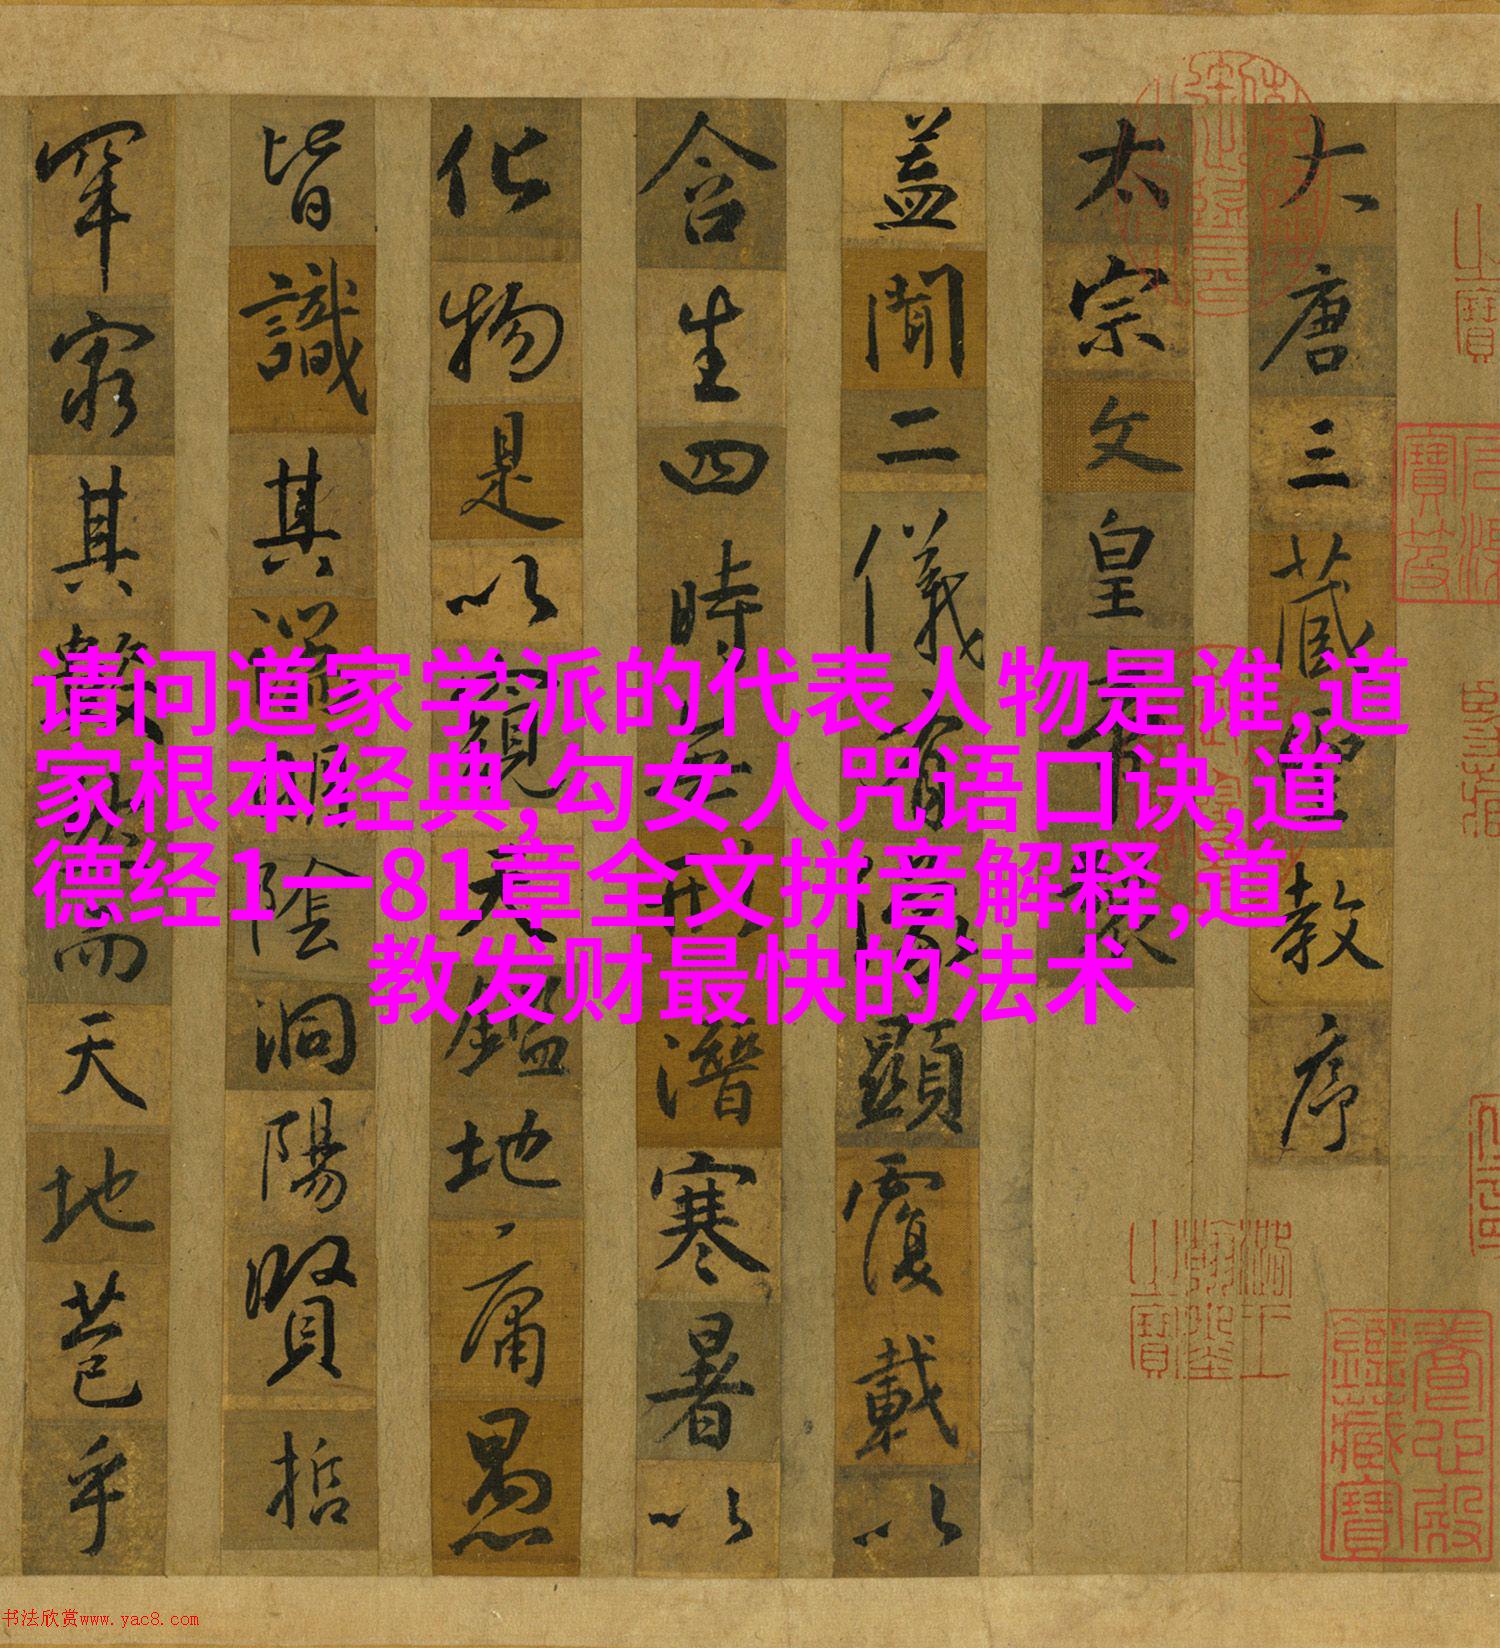 大唐三藏聖教序
太宗文皇帝製
蓋聞二儀有像顯覆載以
含生四時無形潛寒暑以
化物是以窺天鑑地庸愚
皆識其端明陰洞陽賢哲
罕窮其數然而天地苞乎
请问道家学派的代表人物是谁,道
家根本经典,勾女人咒语口诀,道
德经1一81章全文拼音解释,道
教发财最快的法术
養心殿鑑藏寶
书法欣赏www.yac8.com